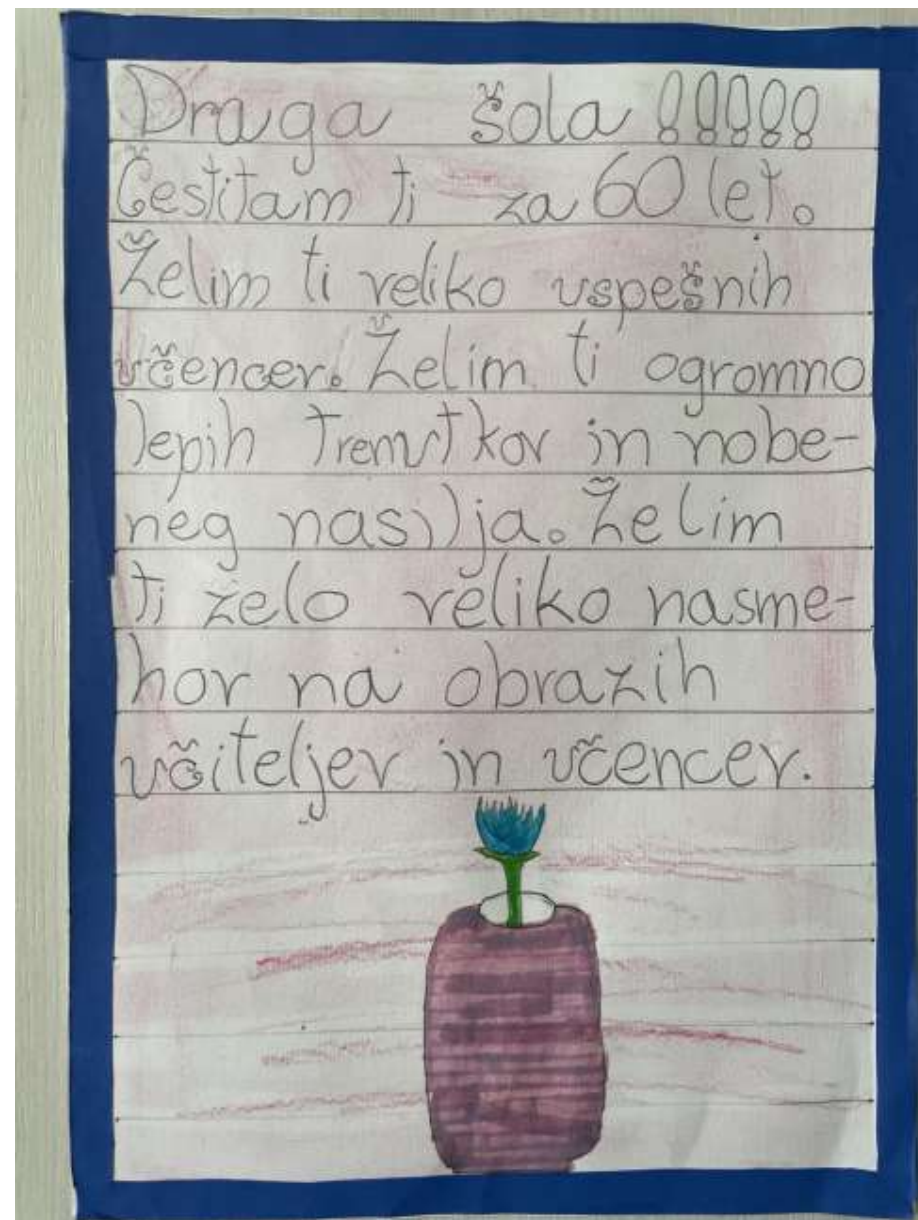 Draga šola !!!!!
Čestitam ti za 60 let.
Želim ti veliko uspešnih
učencev. Želim ti ogromno
lepih trenutkov in nobe-
neg nasilja. Želim
ti zelo veliko nasme-
hov na obrazih
učiteljev in učencev.